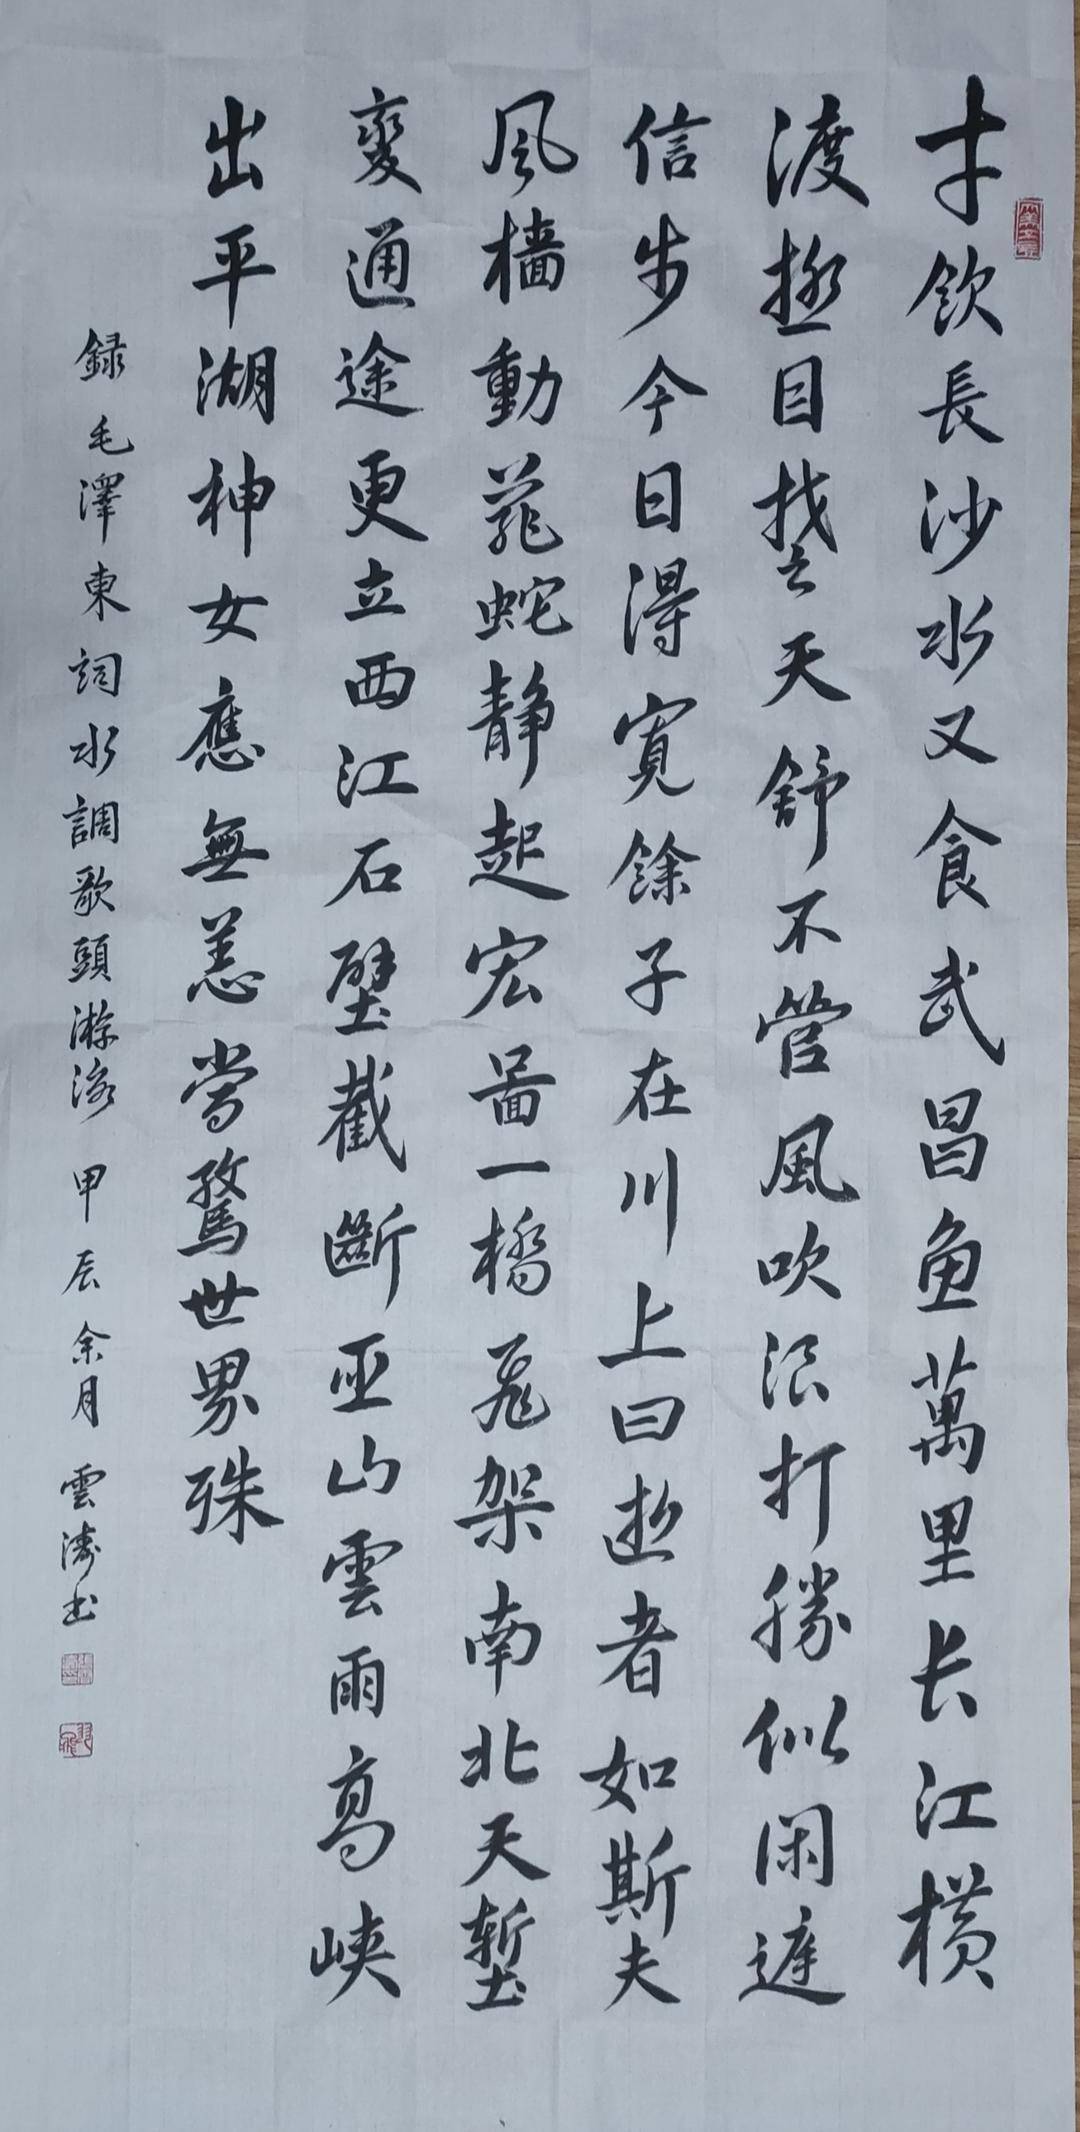 才飲長沙水又食武昌鱼萬里长江横
渡極目楚天舒不管風吹浪打勝似闲庭
信步今日得寬餘子在川上曰逝者如斯夫
风樯動龜蛇静起宏图一橋飛架南北天塹
變通途更立西江石壁截斷巫山雲雨高峡
出平湖神女應無恙當驚世界殊
録毛澤東詞水調歌頭游泳 甲辰余月 雲濤书